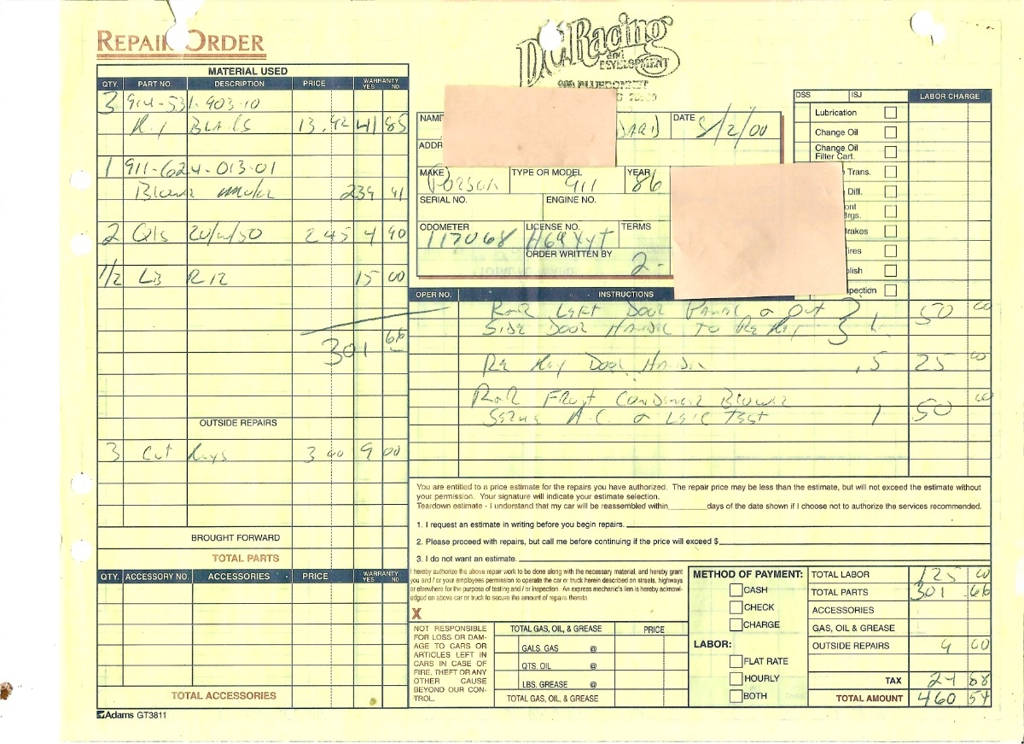 REPAIR ORDER
D.C. Racing
and
DEVELOPMENT
MATERIAL USED
QTY. PART NO. DESCRIPTION PRICE WARRANTY YES NO
3 914-531-903-10
Key Blanks 13.92 41 85
1 911-624-013-01
Blower motor 239 91
2 Qts 20/w/50 2 45 4 90
1/2 LB R12 15 00
301 66
OUTSIDE REPAIRS
3 Cut keys 3 00 9 00
BROUGHT FORWARD
TOTAL PARTS
QTY. ACCESSORY NO. ACCESSORIES PRICE WARRANTY YES NO
TOTAL ACCESSORIES
Adams GT3811
NAME DATE 5/2/00
ADDR
MAKE TYPE OR MODEL 911 YEAR 86
SERIAL NO. ENGINE NO.
ODOMETER 117068 LICENSE NO. H69XYT TERMS
ORDER WRITTEN BY 2-
DSS ISJ LABOR CHARGE
Lubrication
Change Oil
Change Oil
Filter Cart.
Trans.
Diff.
OPER NO. INSTRUCTIONS
R&R Left Door Panel & Out
Side Door Handle To Re Key 1 50 00
Re Key Door Handle .5 25 00
R&R Front Condenser Blower
A-C & Leak Test 1 50 00
You are entitled to a price estimate for the repairs you have authorized. The repair price may be less than the estimate, but will not exceed the estimate without
your permission. Your signature will indicate your estimate selection.
Teardown estimate - I understand that my car will be reassembled within________days of the date shown if I choose not to authorize the services recommended.
1. I request an estimate in writing before you begin repairs.
2. Please proceed with repairs, but call me before continuing if the price will exceed $
3. I do not want an estimate.
I hereby authorize the above repair work to be done along with the necessary material, and hereby grant
you and / or your employees permission to operate the car or truck herein described on streets, highways
or elsewhere for the purpose of testing and / or inspection. An express mechanic's lien is hereby acknowl-
edged on above car or truck to secure the amount of repairs thereto.
X
NOT RESPONSIBLE
FOR LOSS OR DAM-
AGE TO CARS OR
ARTICLES LEFT IN
CARS IN CASE OF
FIRE, THEFT OR ANY
OTHER CAUSE
BEYOND OUR CON-
TROL.
TOTAL GAS, OIL, & GREASE PRICE
GALS. GAS @
QTS. OIL @
LBS. GREASE @
TOTAL GAS, OIL, & GREASE
METHOD OF PAYMENT:
CASH
CHECK
CHARGE
LABOR:
FLAT RATE
HOURLY
BOTH
TOTAL LABOR 125 00
TOTAL PARTS 301 66
ACCESSORIES
GAS, OIL & GREASE
OUTSIDE REPAIRS 9 00
TAX 24 88
TOTAL AMOUNT 460 54